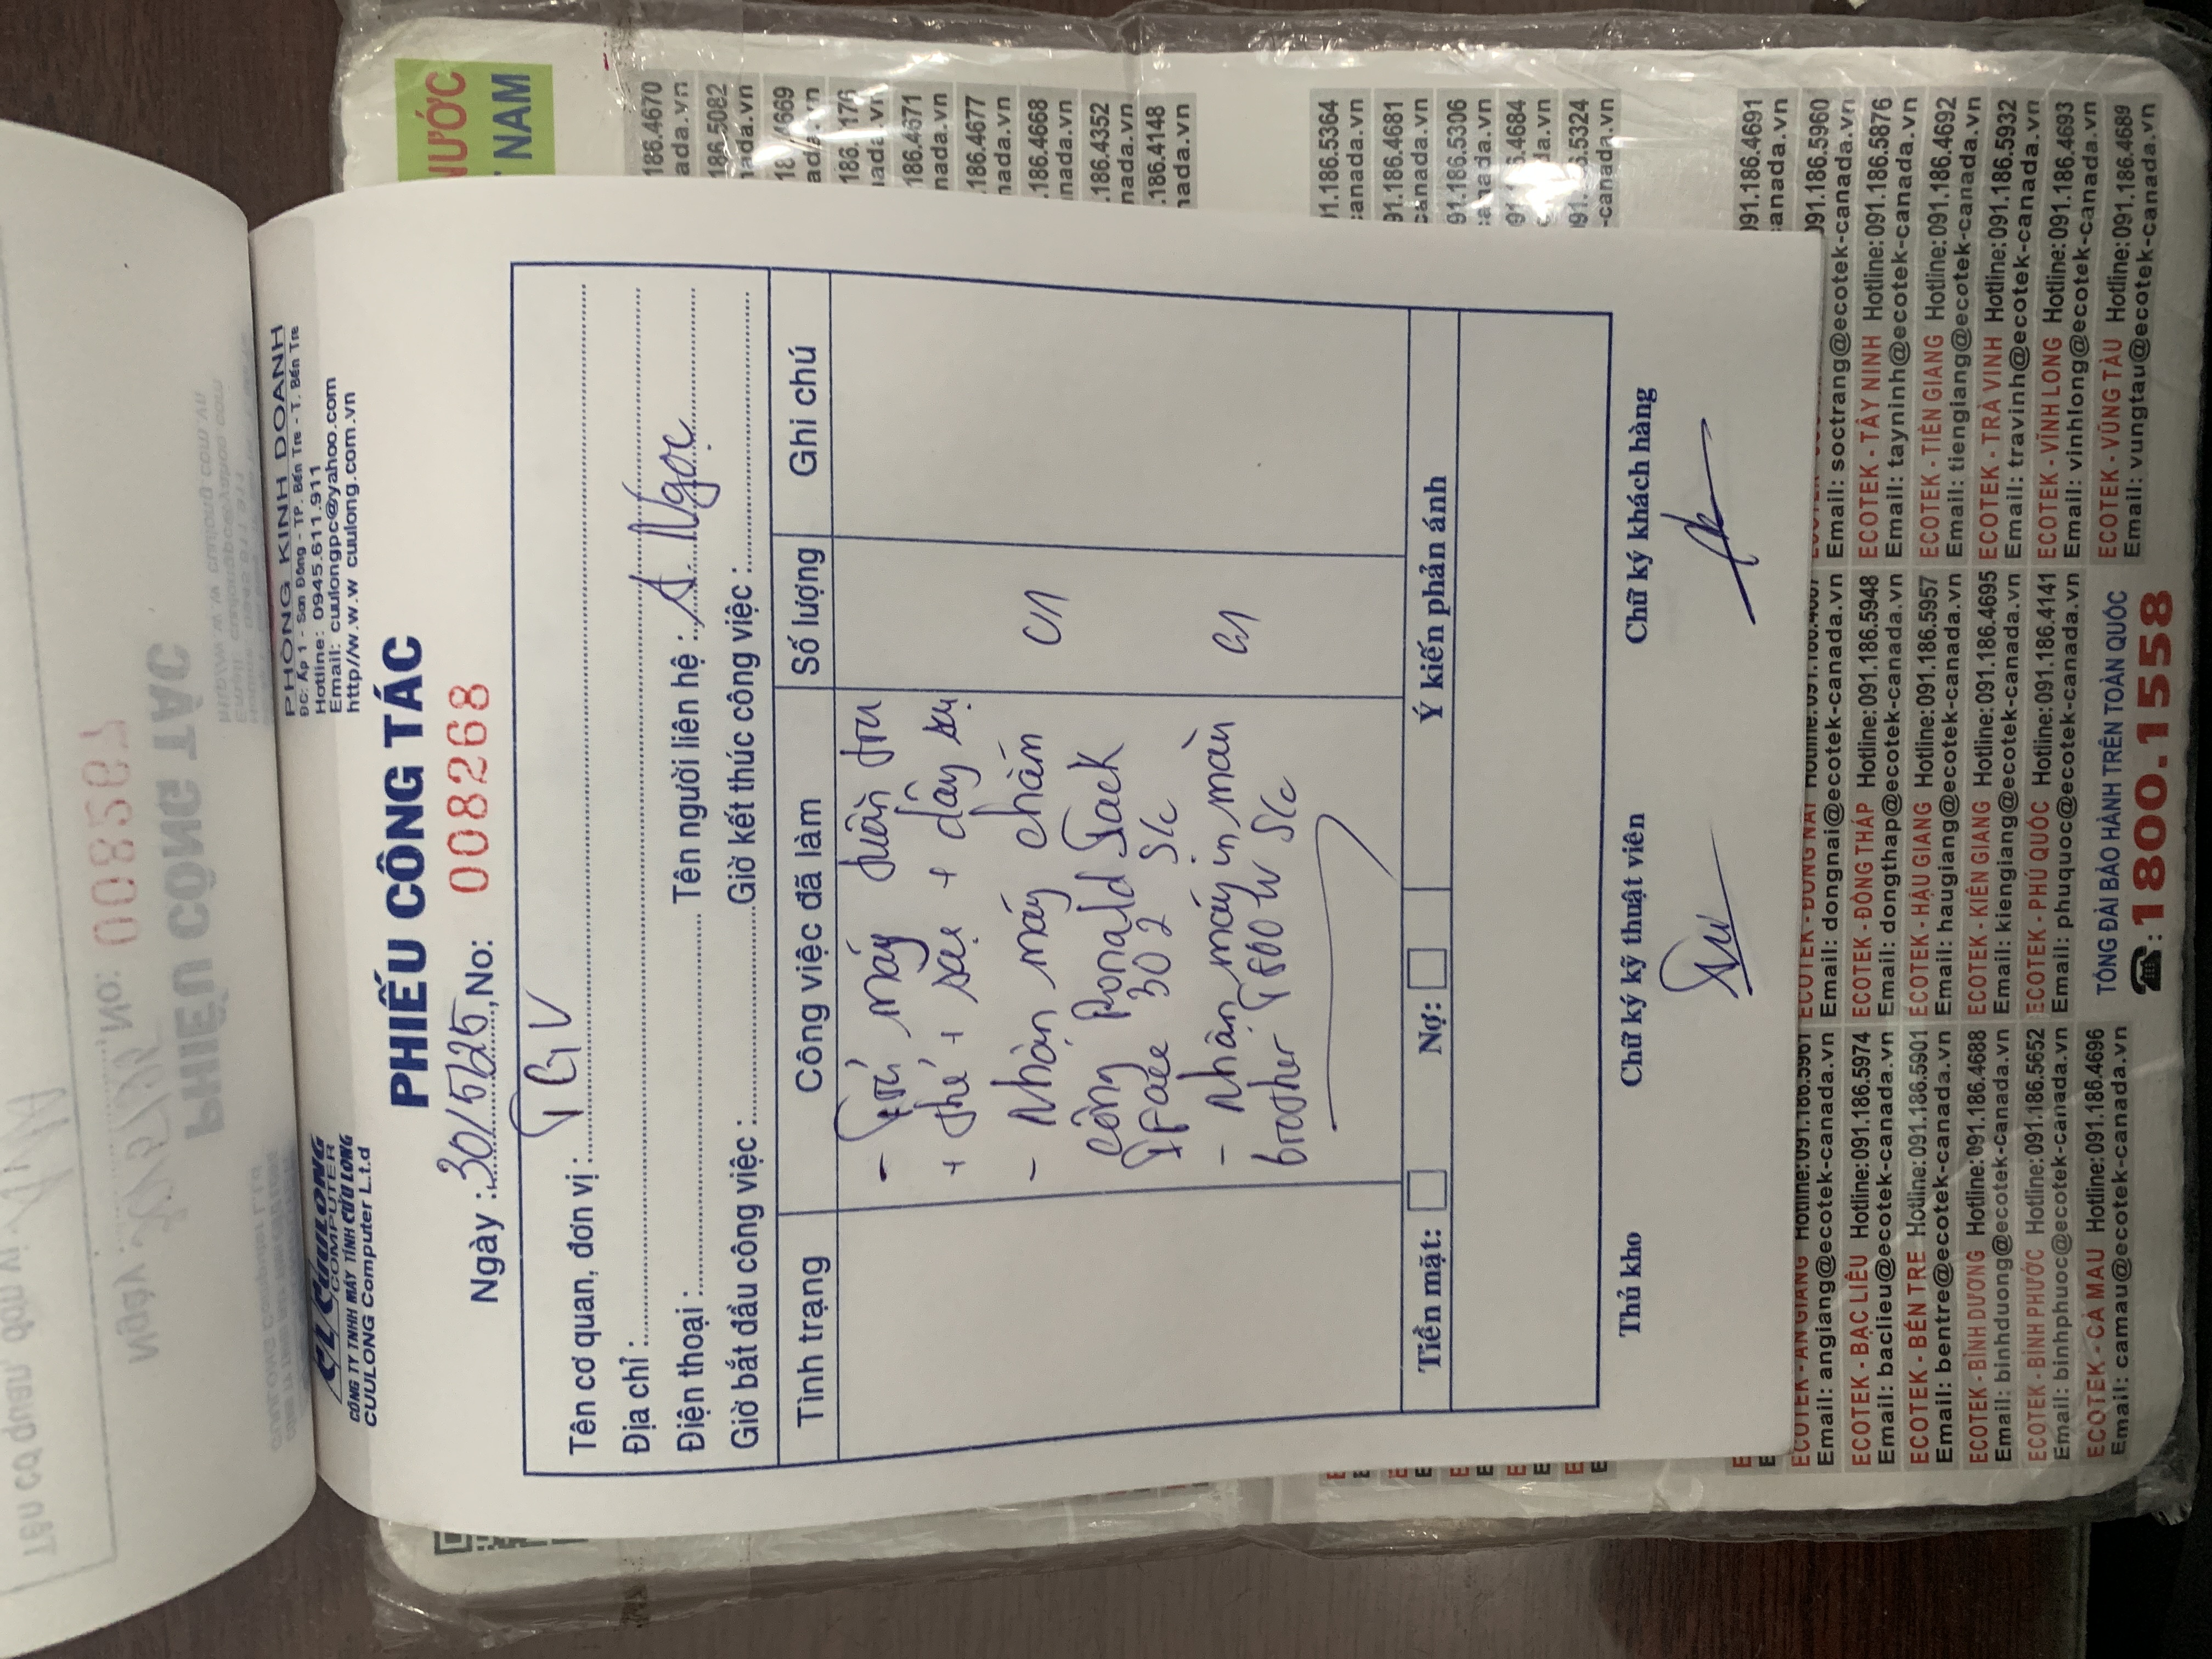 CL CUULONG
COMPUTER
CÔNG TY TNHH MÁY TÍNH CỬU LONG
CUULONG Computer L.t.d
PHÒNG KINH DOANH
ĐC: Ấp 1 - Sơn Đông - TP. Bến Tre - T. Bến Tre
Hotline: 0945.611.911
Email: cuulongpc@yahoo.com
http//w.w.w cuulong.com.vn
PHIẾU CÔNG TÁC
Ngày : 30/5/25, No: 008268
Tên cơ quan, đơn vị: TGV
Địa chỉ :
Điện thoại : Tên người liên hệ : A. Ngọc
Giờ bắt đầu công việc : Giờ kết thúc công việc :
Tình trạng Công việc đã làm Số lượng Ghi chú
- Trả máy tuần tra
+ thẻ + sạc + dây
- Nhận máy chấm 01
công Ronald Jack
IFace 302 S/c
- Nhận máy in màu 01
brother T800W S/c
Tiền mặt: Nợ: Ý kiến phản ánh
Thủ kho Chữ ký kỹ thuật viên Chữ ký khách hàng
NƯỚC
NAM
186.4670
ada.vn
186.5082
nada.vn
4669
186.4671
nada.vn
.186.4677
nada.vn
.186.4668
nada.vn
.186.4352
nada.vn
.186.4148
nada.vn
91.186.5364
canada.vn
91.186.4681
canada.vn
91.186.5306
91.186.4691
canada.vn
091.186.5960
Email: angiang@ecotek-canada.vn Email: dongnai@ecotek-canada.vn Email: soctrang@ecotek-canada.vn
ECOTEK - BẠC LIÊU Hotline:091.186.5974 ECOTEK - ĐỒNG THÁP Hotline:091.186.5948 ECOTEK - TÂY NINH Hotline:091.186.5876
Email: baclieu@ecotek-canada.vn Email: dongthap@ecotek-canada.vn Email: tayninh@ecotek-canada.vn
ECOTEK - BẾN TRE Hotline:091.186.5901 ECOTEK - HẬU GIANG Hotline:091.186.5957 ECOTEK - TIỀN GIANG Hotline:091.186.4692
Email: bentre@ecotek-canada.vn Email: haugiang@ecotek-canada.vn Email: tiengiang@ecotek-canada.vn
ECOTEK - BÌNH DƯƠNG Hotline:091.186.4688 ECOTEK - KIÊN GIANG Hotline:091.186.4695 ECOTEK - TRÀ VINH Hotline:091.186.5932
Email: binhduong@ecotek-canada.vn Email: kiengiang@ecotek-canada.vn Email: travinh@ecotek-canada.vn
ECOTEK - BÌNH PHƯỚC Hotline:091.186.5652 ECOTEK - PHÚ QUỐC Hotline:091.186.4141 ECOTEK - VĨNH LONG Hotline:091.186.4693
Email: binhphuoc@ecotek-canada.vn Email: phuquoc@ecotek-canada.vn Email: vinhlong@ecotek-canada.vn
ECOTEK - CÀ MAU Hotline:091.186.4696 TỔNG ĐÀI BẢO HÀNH TRÊN TOÀN QUỐC ECOTEK - VŨNG TÀU Hotline:091.186.4689
Email: camau@ecotek-canada.vn ☎: 1800.1558 Email: vungtau@ecotek-canada.vn